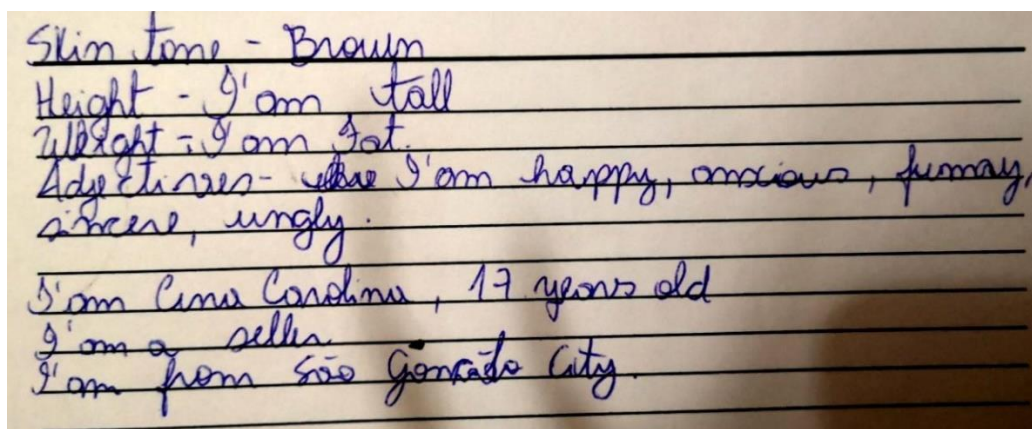 Skin tone - Brown
Height - I'am tall
Weight - I am Fat.
Adjectives- I'am happy, anxious, funny,
sincere, ungly.
I'am Ana Carolina, 17 years old
I'am a seller
I'am from São Gonçalo City.